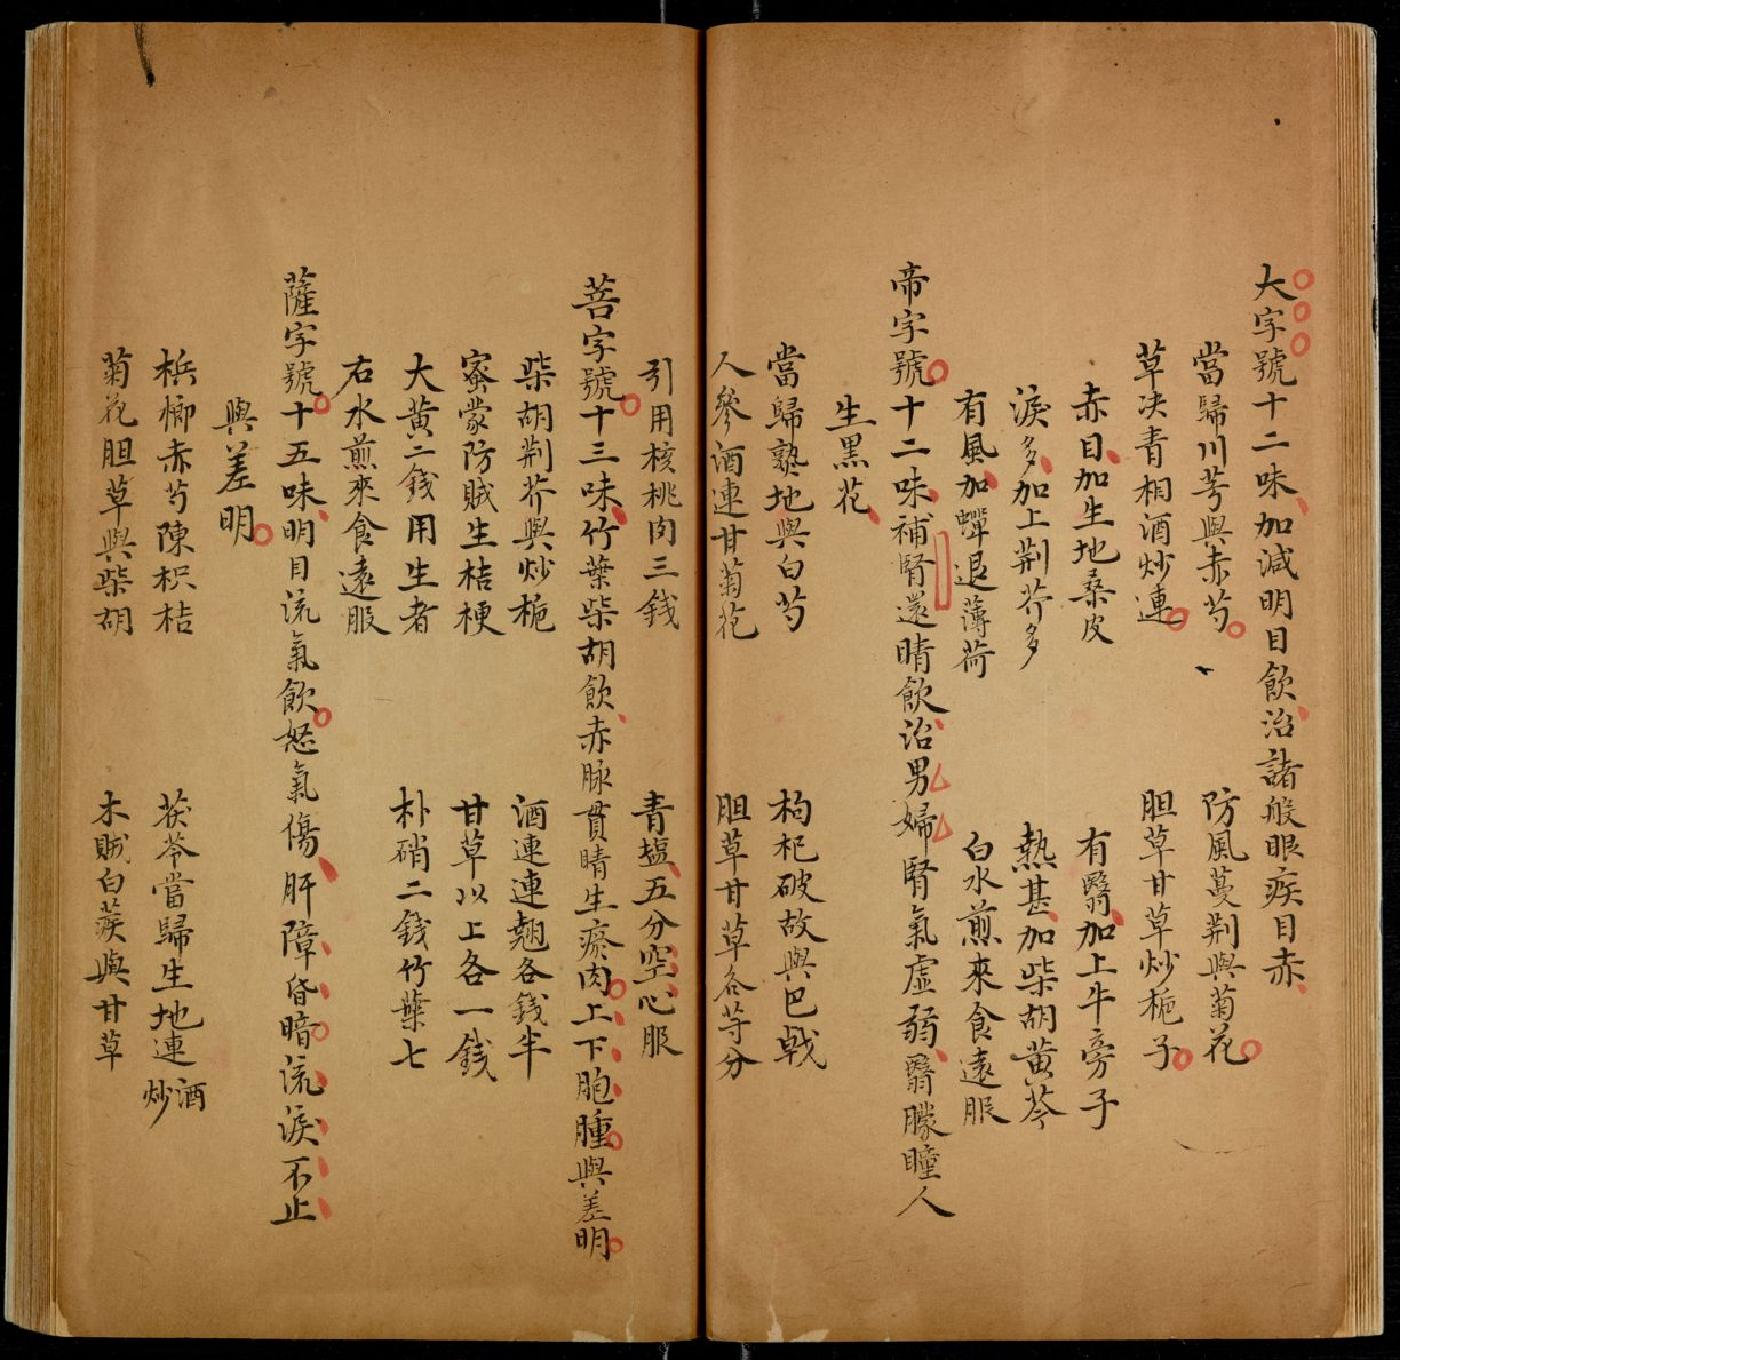 大字號十二味加減明目飲治諸般眼疾目赤
當歸川芎與赤芍　防風蔓荆與菊花
草决青相酒炒連　胆草甘草炒梔子
赤目加生地桑皮　有翳加上牛旁子
淚多加上荆芥多　熱甚加柴胡黄芩
有風加蟬退薄荷　白水煎來食遠服
帝字號十二味補腎還晴飲治男婦腎氣虛弱翳朦瞳人
生黑花
當歸熟地與白芍　枸杞破故與巴戟
人參酒連甘菊花　胆草甘草各等分
引用核桃肉三錢　青塩五分空心服
菩字號十三味竹葉柴胡飲赤脉貫睛生瘀肉上下胞腫與差明
柴胡荆芥與炒梔　酒連連翹各錢半
蜜蒙防賊生桔梗　甘草以上各一錢
大黄二錢用生者　朴硝二錢竹葉七
右水煎來食遠服
薩字號十五味明目流氣飲怒氣傷肝障昏暗流淚不止
與差明
梹榔赤芍陳枳桔　茯苓當歸生地連酒炒
菊花胆草與柴胡　木賊白蒺與甘草